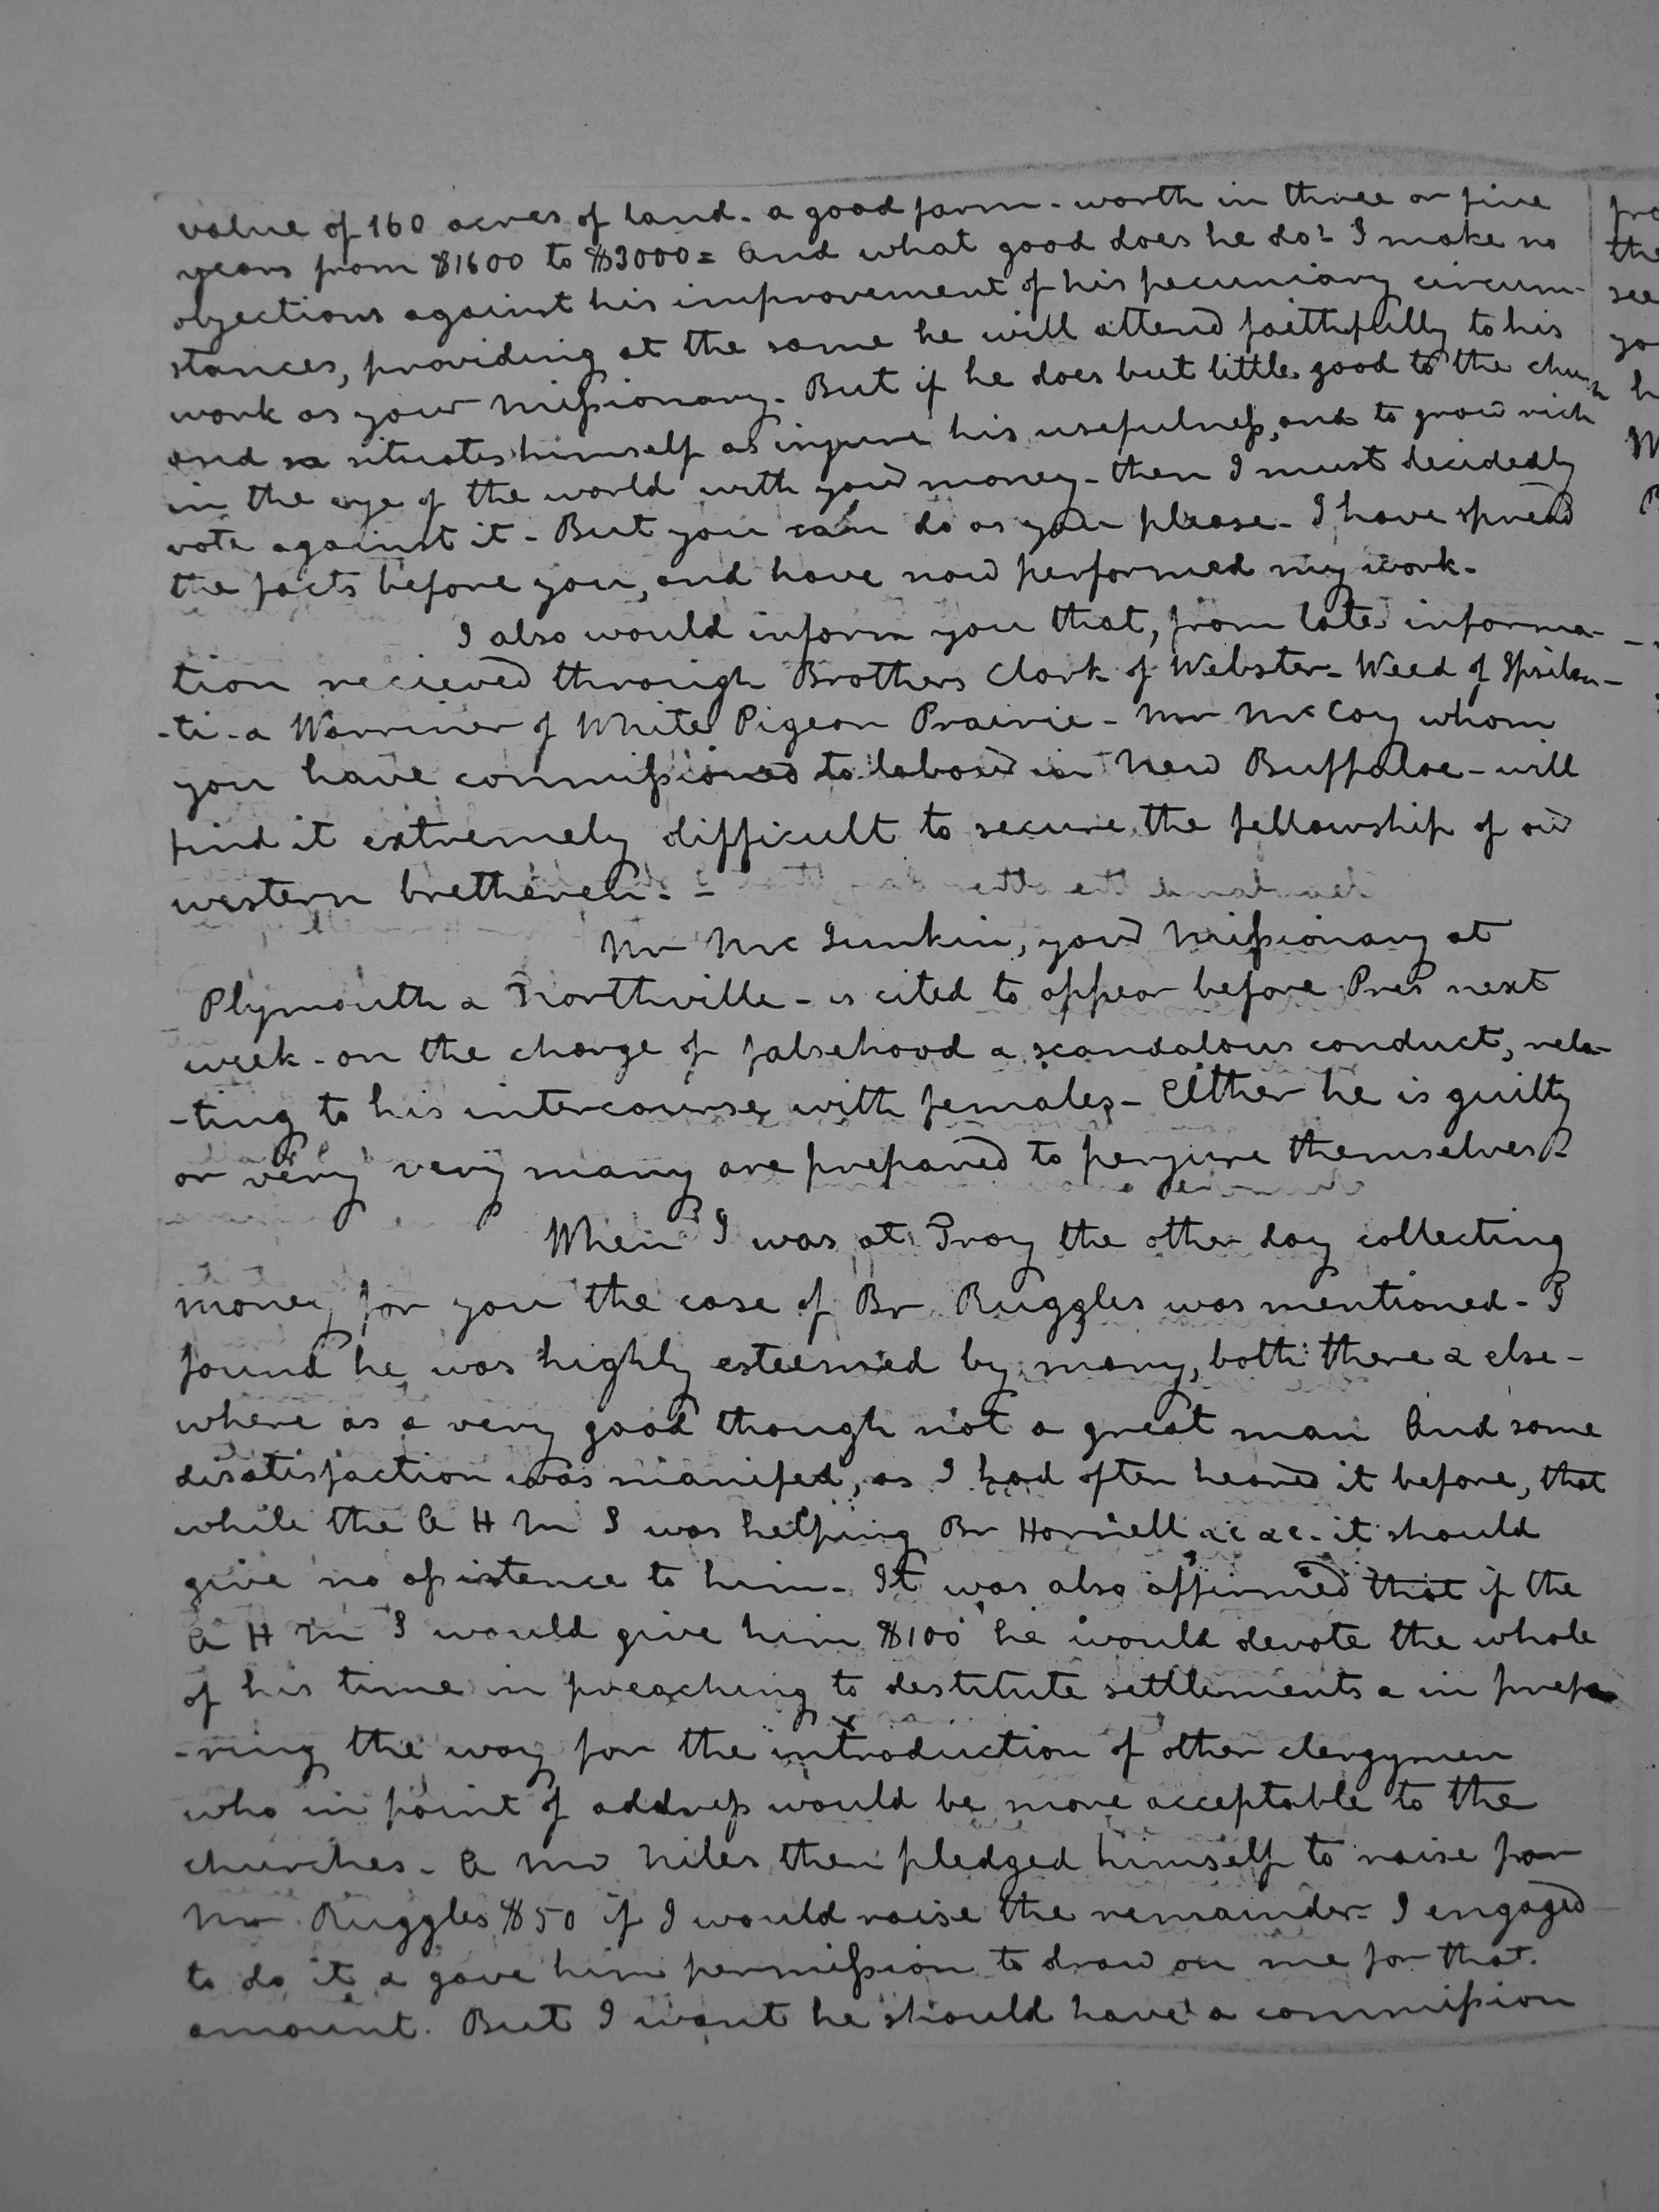 value of 160 acres of land - a good farm - worth in three or five
years from $1600 to $3000 = And what good does he do? I make no
objections against his improvement of his pecuniary circum-
stances, providing at the same he will attend faithfully to his
work as your missionary. But if he does but little good to the church
and so situates himself as injure his usefulness, and to grow rich
in the eye of the world with your money - then I must decidedly
vote against it - But you can do as you please - I have spread
the facts before you, and have now performed my work -
I also would inform you that, from late informa-
tion recieved through Brothers Clark of Webster - Weed of Ipsilan-
-ti - & Warriner of White Pigeon Prairie - Mr McCoy whom
you have commissioned to labour in New Buffaloe - will
find it extremely difficult to secure the fellowship of our
western bretheren. -
Mr Mc Junkin, your Missionary at
Plymouth & Northville - is cited to appear before Pres next
week - on the charge of falsehood & scandalous conduct, rela-
-ting to his intercourse with females - Either he is guilty
or very very many are prepared to perjure themselves -
When I was at Troy the other day collecting
money for you the case of Br Ruggles was mentioned - I
found he was highly esteemed by many, both there & else-
where as a very good though not a great man And some
disatisfaction was manifed, as I had often heard it before, that
while the A H M S was helping Br Hornell &c &c - it should
give no assistence to him - It was also affirmed that if the
A H M S would give him $100 he would devote the whole
of his time in preaching to destitute settlements & in prepa
-ring the way for the introduction of other clergymen
who in point of address would be more acceptable to the
churches - A Mr Niles then pledged himself to raise for
Mr Ruggles $50 if I would raise the remainder - I engaged
to do it & gave him permission to draw on me for that
amount. But I want he should have a commission